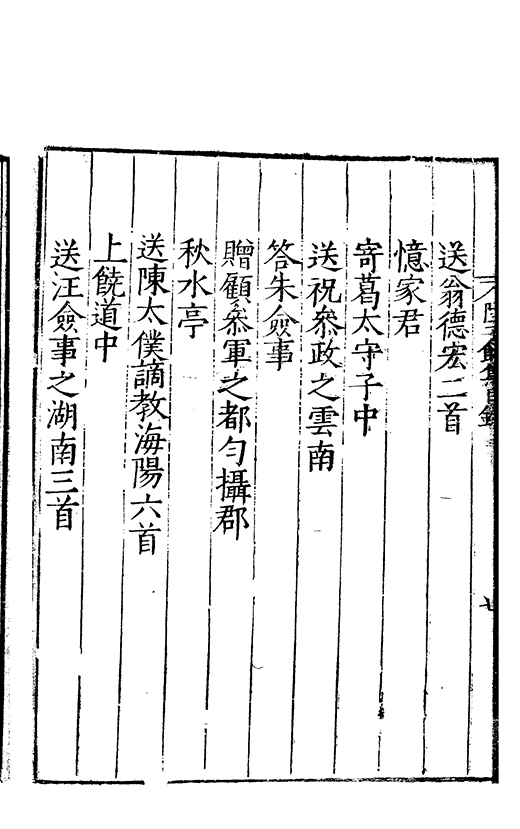 送翁德宏二首
憶家君
寄葛太守子中
送祝叅政之雲南
答朱僉事
贈顧叅軍之都勻攝郡
秋水亭
送陳太僕謫教海陽六首
上饒道中
送汪僉事之湖南三首